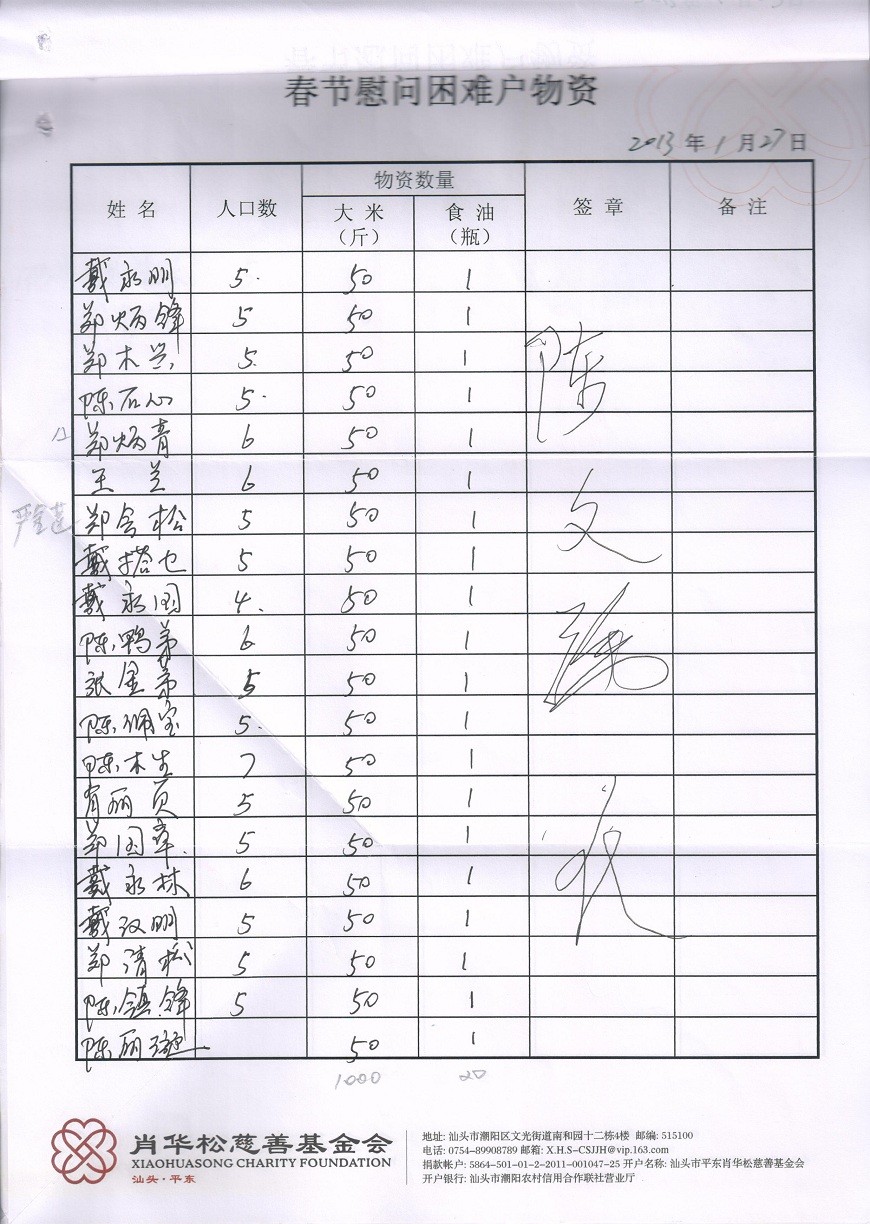 春节慰问困难户物资
2013年1月27日
姓名 人口数 物资数量 签章 备注
大米(斤) 食油(瓶)
戴永明 5. 50 1
郑炳锋 5 50 1
郑木兰 5. 50 1
陈石心 5. 50 1
郑炳青 6 50 1
王兰 6 50 1
郑会松 5 50 1
戴搭乜 5 50 1
戴永国 4. 50 1
陈鸭弟 6 50 1
张金弟 5 50 1
陈佩宝 5. 50 1
陈木生 7 50 1
肖丽贞 5 50 1
郑国章. 5 50 1
戴永林 6 50 1
戴汉明 5 50 1
郑清松 5 50 1
陈镇锋 5 50 1
陈丽 50 1
1000 20
陈文
肖华松慈善基金会
XIAOHUASONG CHARITY FOUNDATION
汕头·平东
地址: 汕头市潮阳区文光街道南和园十二栋4楼 邮编: 515100
电话: 0754-89908789 邮箱: X.H.S-CSJJH@vip.163.com
捐款帐户: 5864-501-01-2-2011-001047-25 开户名称: 汕头市平东肖华松慈善基金会
开户银行: 汕头市潮阳农村信用合作联社营业厅